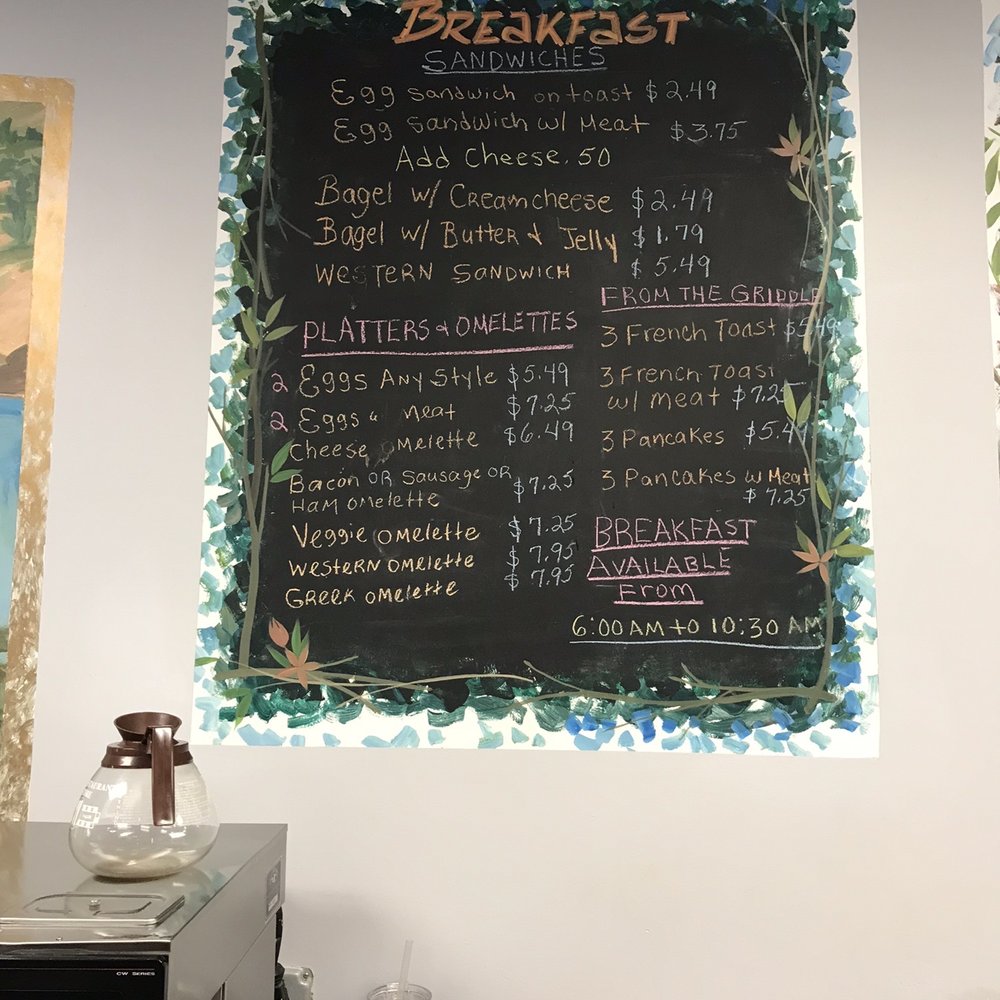 BREAKFAST
SANDWICHES
Egg sandwich on toast $2.49
Egg sandwich w/ Meat $3.75
Add Cheese .50
Bagel w/ Creamcheese $2.49
Bagel w/ Butter & Jelly $1.79
WESTERN SANDWICH $5.49
PLATTERS & OMELETTES
2 Eggs Any Style $5.49
2 Eggs & Meat $7.25
Cheese omelette $6.49
Bacon OR Sausage OR
Ham omelette $7.25
Veggie omelette $7.25
Western omelette $7.95
Greek omelette $7.95
FROM THE GRIDDLE
3 French Toast $5.49
3 French Toast
w/ meat $7.25
3 Pancakes $5.4
3 Pancakes w Meat
$7.25
BREAKFAST
AVAILABLE
FROM
6:00 AM to 10:30 AM
CW SERIES